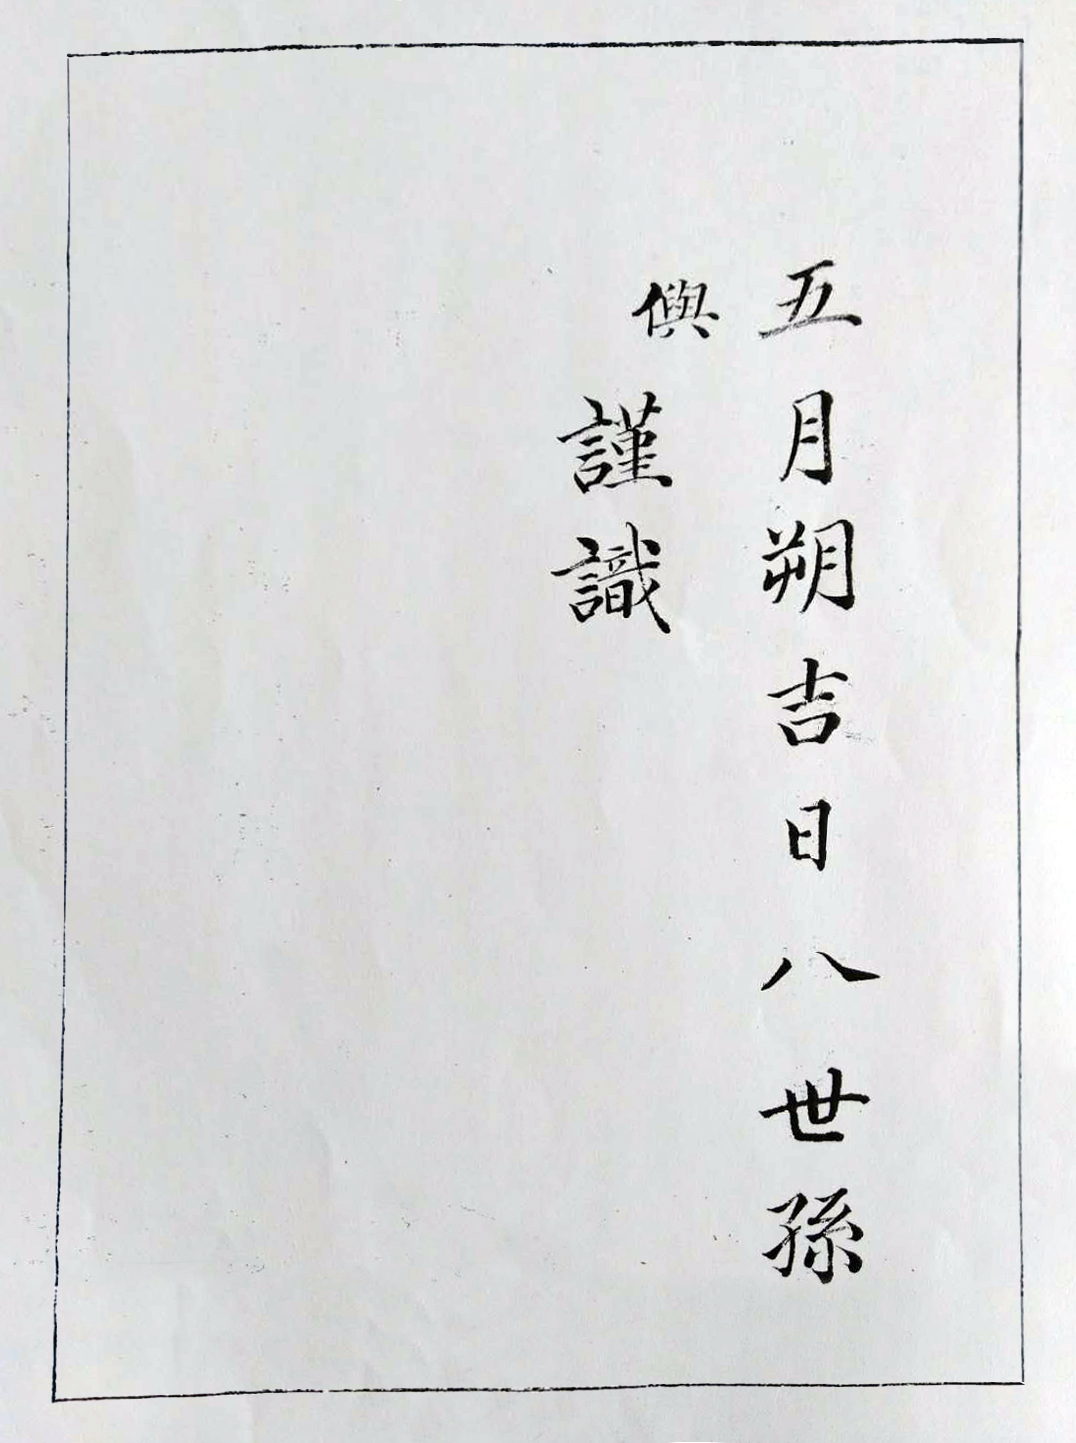 五月朔吉日八世孫
㒜謹識